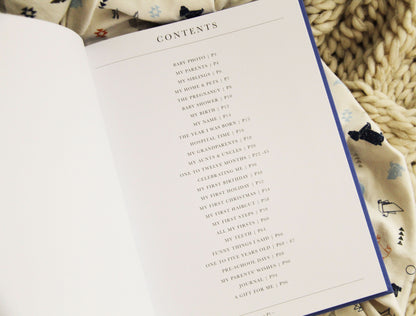 CONTENTS
BABY PHOTO | P3
MY PARENTS | P4
MY SIBLINGS | P6
MY HOME & PETS | P7
THE PREGNANCY | P8
BABY SHOWER | P10
MY BIRTH | P12
MY NAME | P14
THE YEAR I WAS BORN |
HOSPITAL TIME |
MY GRANDPARENTS |
MY AUNTS & UNCLES |
ONE TO TWELVE MONTHS |
CELEBRATING ME |
MY FIRST BIRTHDAY |
MY FIRST HOLIDAY |
MY FIRST CHRISTMAS |
MY FIRST HAIRCUT |
MY FIRST STEPS |
ALL MY FIRSTS |
MY TEETH |
FUNNY THINGS I SAID |
ONE TO FIVE YEARS OLD |
PRE-SCHOOL DAYS |
MY PARENTS' WISHES |
JOURNAL |
A GIFT FOR ME | P96